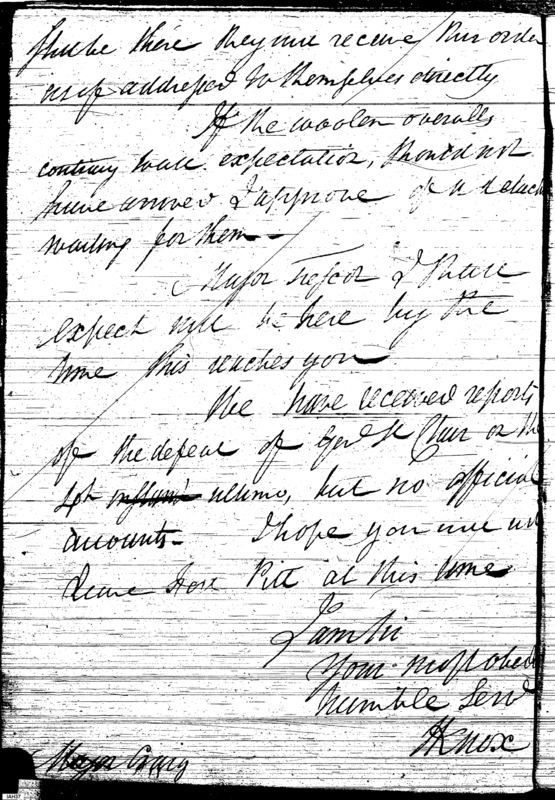 shall be there they will receive this order
as if addressed to themselves directly
If the woolen overalls
contrary to all expectation, should not
have arrived I approve of a detach
waiting for them —
Major Trescot I
expect will be here by the
time this reaches you
We have received reports
of the defeat of Genl St Clair on the
4th instant ultimo, but no official
accounts — I hope you will not
leave Fort Pitt at this time
I am Sir
Your most obed
humble Serv
HKnox
Major Craig